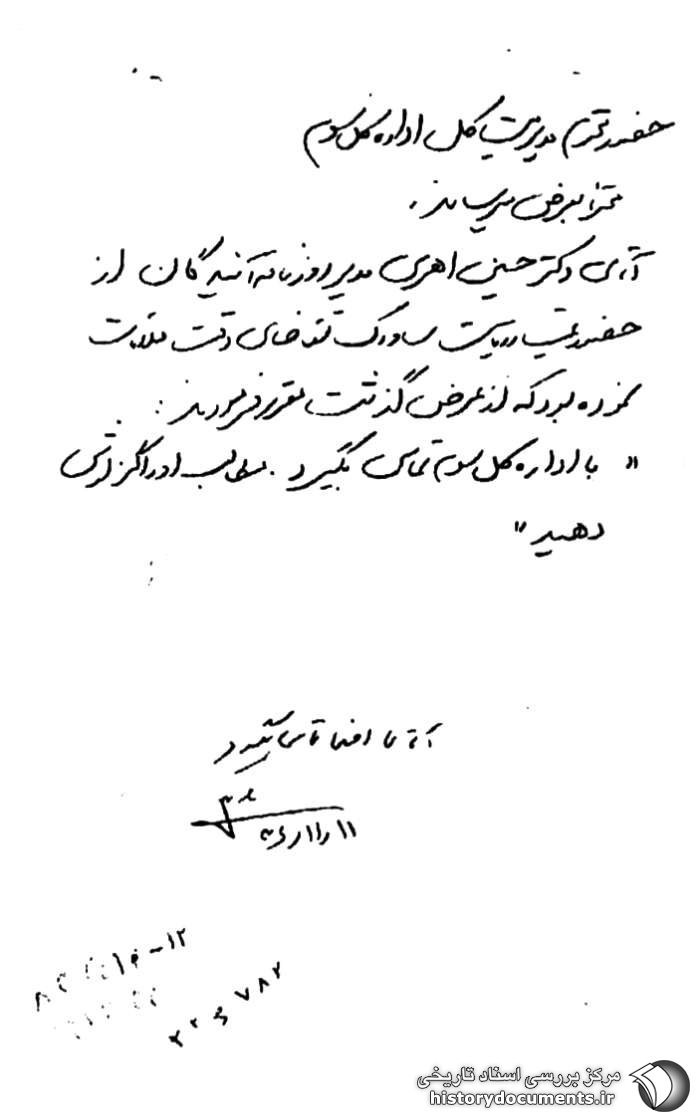 حضور محترم مدیریت کل اداره کل سوم
محترما بعرض میرساند.
آقای دکتر حسین اهری مدیر روزنامه آیندگان از
حضور ریاست ساواک تقاضای وقت ملاقات
نموده بود که از عرض گذشت مقرر فرمودند:
"با اداره کل سوم تماس بگیرد. مطالب او را گزارش
دهید"
تماس بگیرد
۱۲-
مرکز بررسی اسناد تاریخی
historydocuments.ir